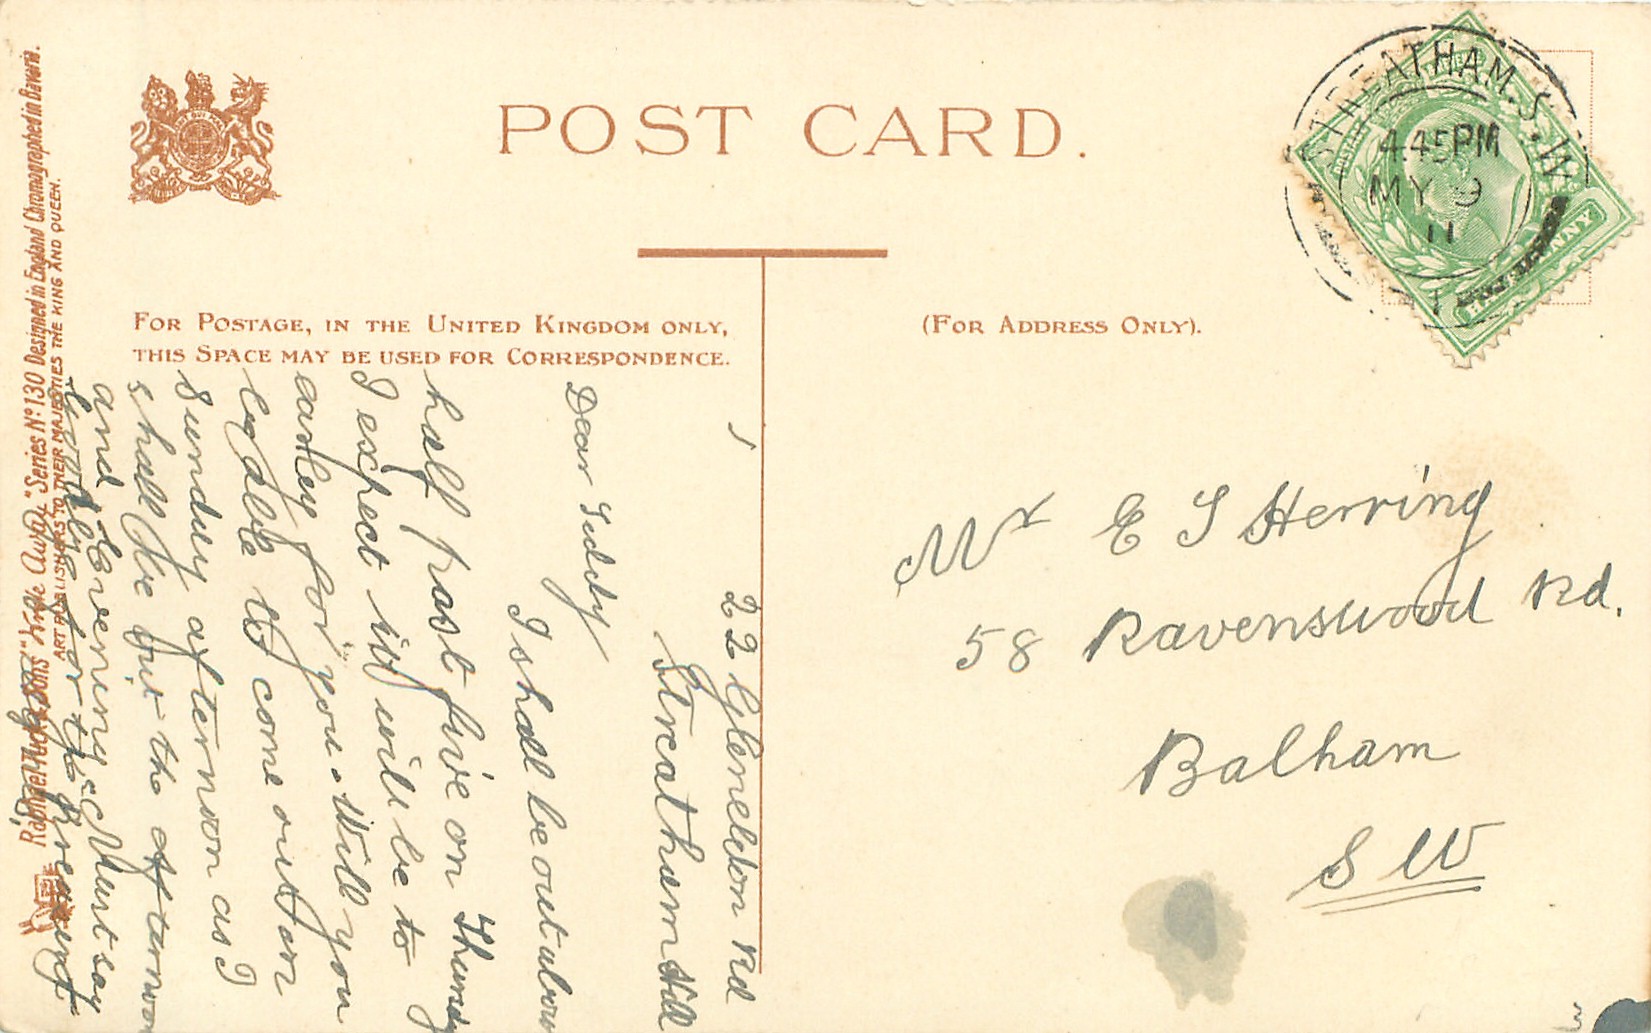 POST CARD.
FOR POSTAGE, IN THE UNITED KINGDOM ONLY,
THIS SPACE MAY BE USED FOR CORRESPONDENCE.
(FOR ADDRESS ONLY).
STREATHAM. S.W
4.45PM
MY 9
11
22 Gleneldon Rd
Streatham Hill
Dear Siddy
I shall be out abou
half past five on Thursdy
I expect it will be to
earley for you. Will you
be able to come out on
Sunday afternoon as I
shall be out the afternoon
and Evening. Must say
goodbye for the present
Mr E S Herring
58 Ravenswood Rd.
Balham
S W
Raphael Tuck & Sons' "Wide Away" Series No 130 Designed in England Chromographed in Bavaria.
ART PUBLISHERS TO THEIR MAJESTIES THE KING AND QUEEN.